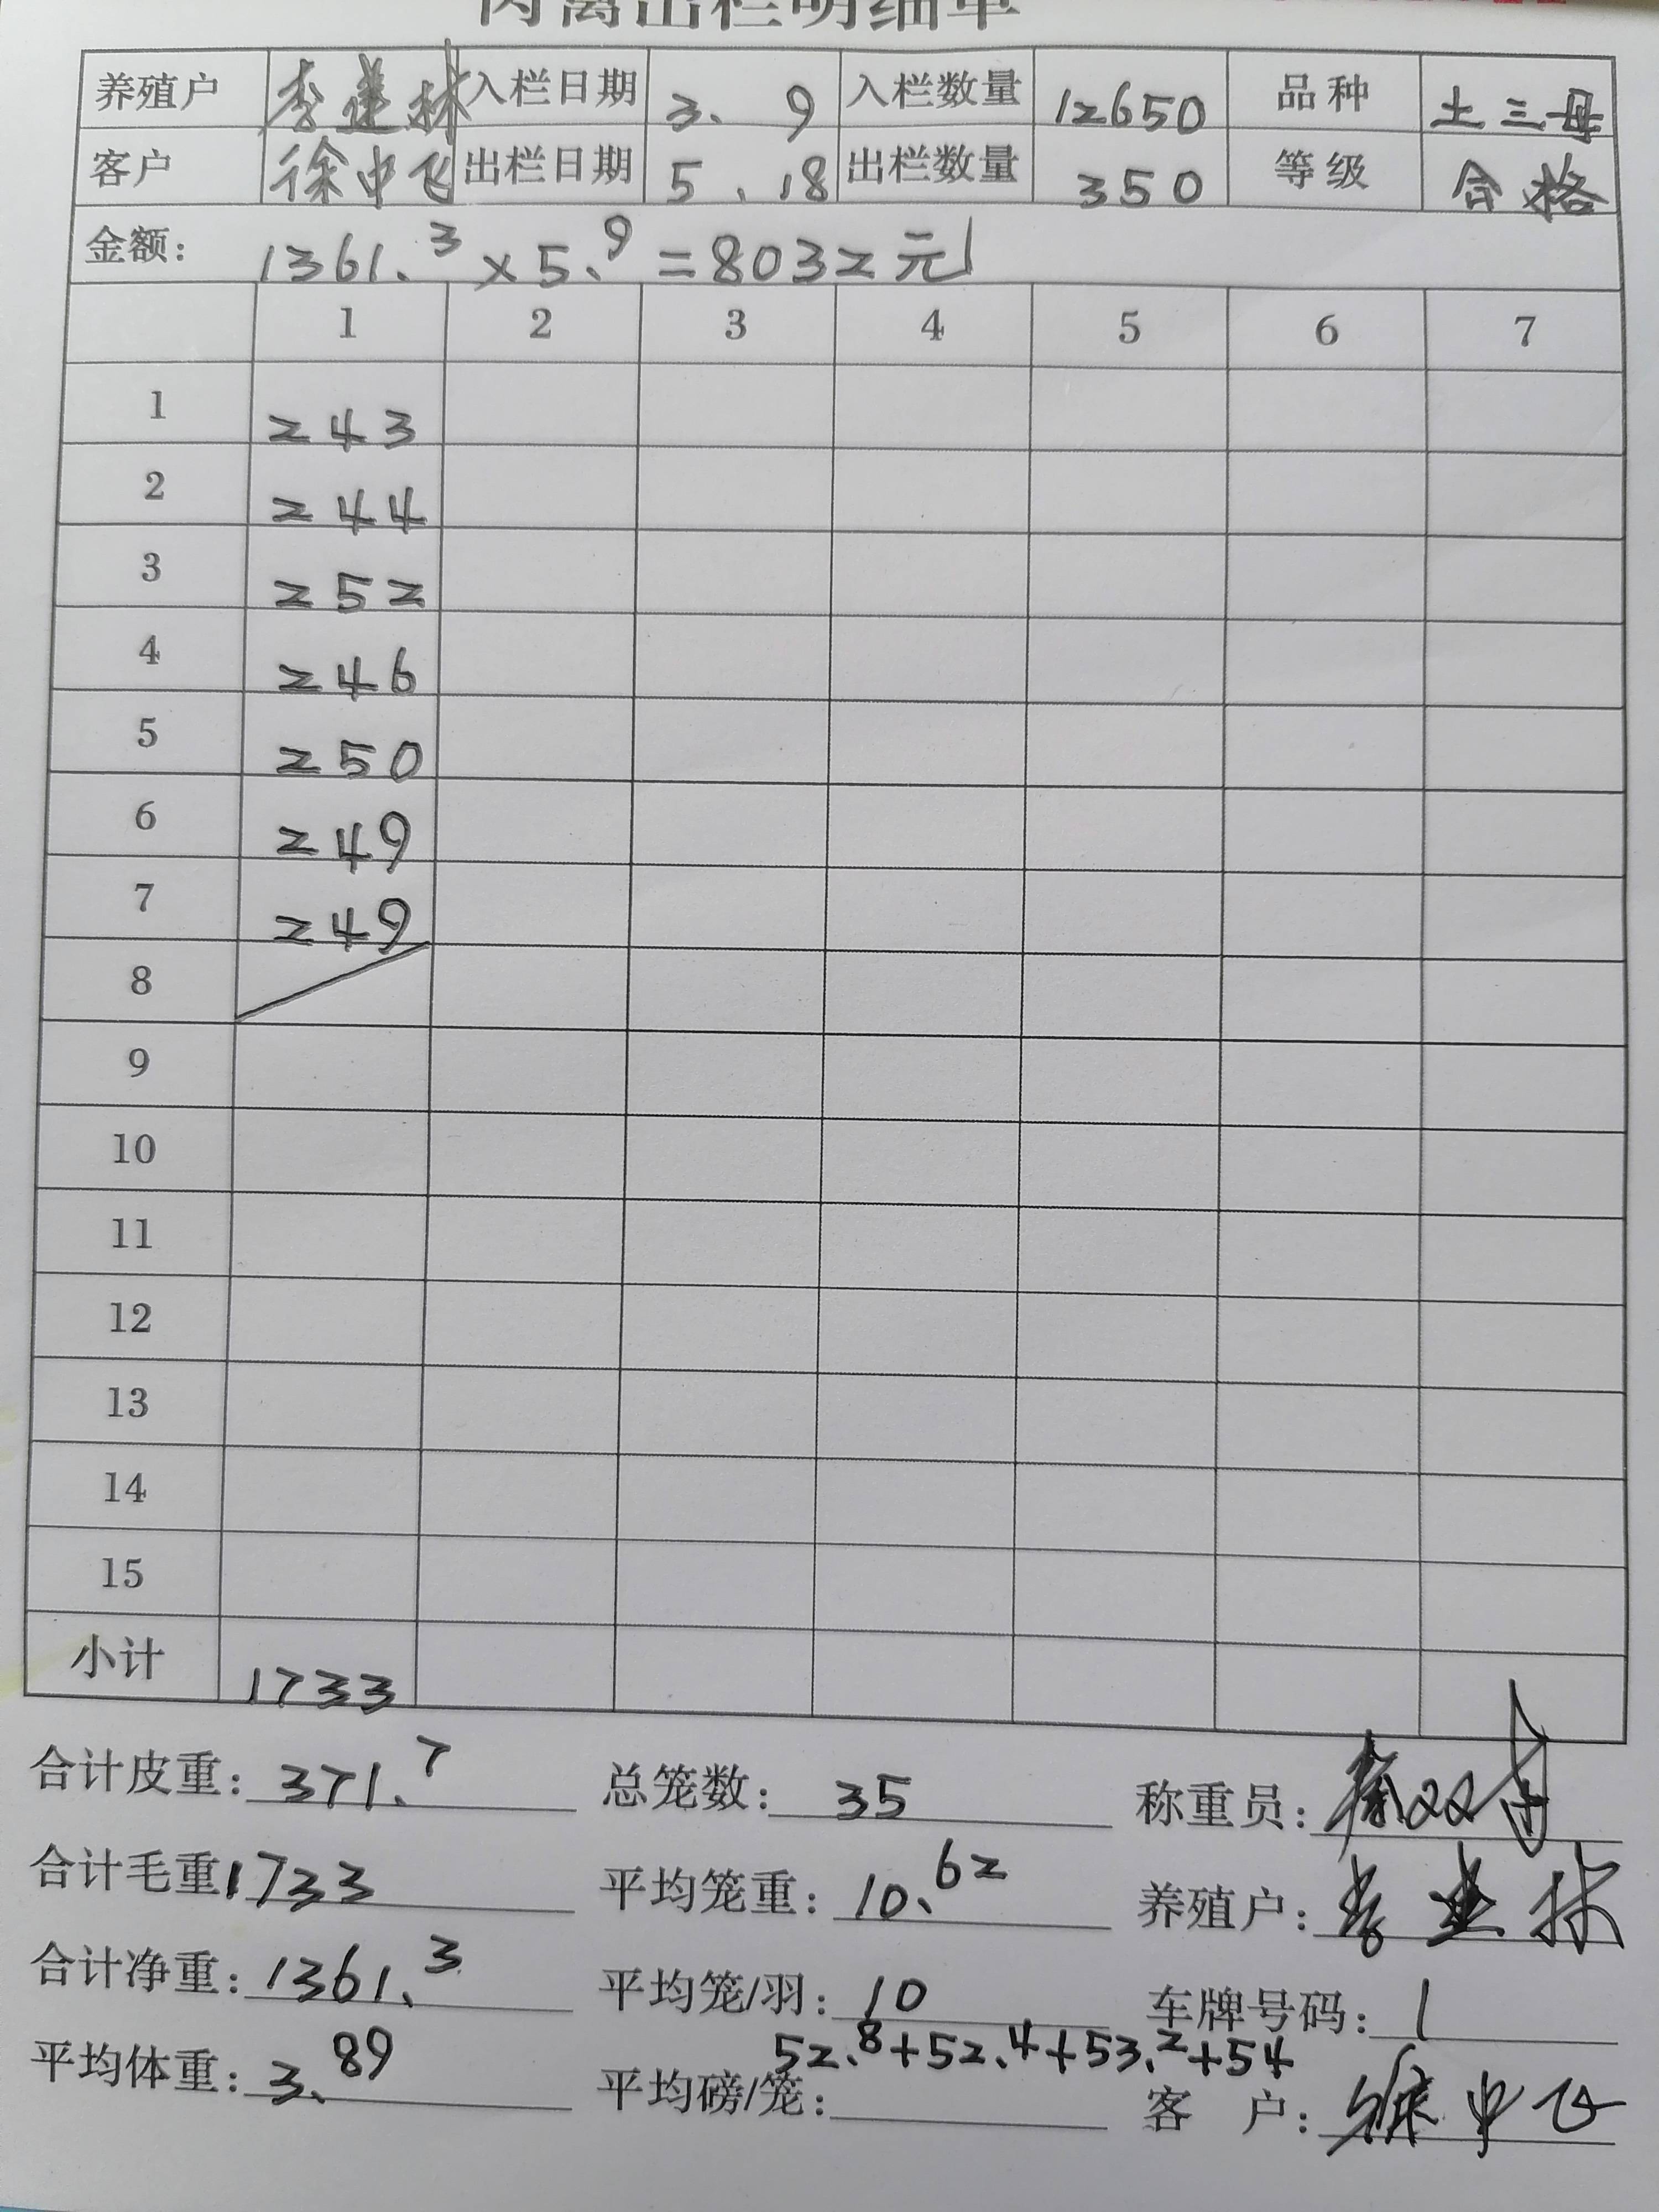 肉禽出栏明细单
养殖户 李建林 入栏日期 3.9 入栏数量 12650 品种 土三母
客户 徐中飞 出栏日期 5.18 出栏数量 350 等级 合格
金额: 1361.3×5.9=8032元
1 2 3 4 5 6 7
1 243
2 244
3 252
4 246
5 250
6 249
7 249
8
9
10
11
12
13
14
15
小计 1733
合计皮重: 371.7 总笼数: 35 称重员:
合计毛重 1733 平均笼重: 10.62 养殖户: 李建林
合计净重: 1361.3 平均笼/羽: 10 车牌号码: 1
52.8+52.4+53.2+54
平均体重: 3.89 平均磅/笼: 客 户: 徐中飞